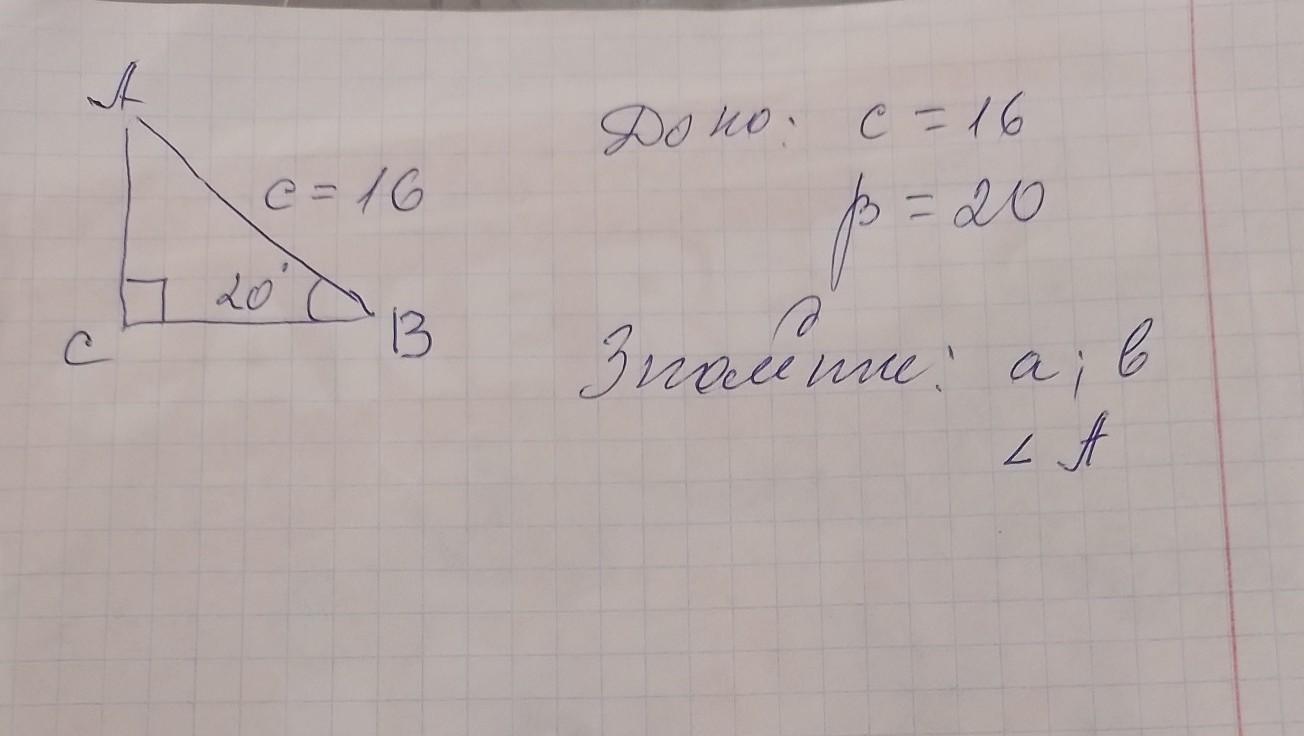 A
c = 16
20°
C
B
Дано: c = 16
β = 20
Знайти: a; b
∠ A